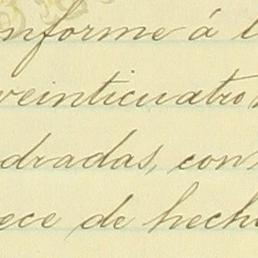 nforme á l
veinticuatro
dradas, con
ece de hech